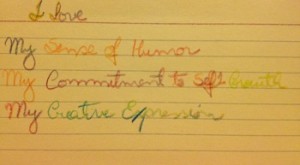 I love
My Sense of Humor
My Commitment to Self Growth
My Creative Expression